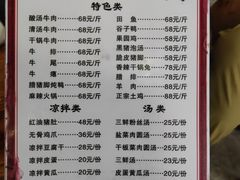 特色类
酸汤牛肉------68元/斤
清汤牛肉------68元/斤
干锅牛肉------68元/斤
牛 排------68元/斤
牛 尾------68元/斤
牛 瘪------68元/斤
腊猪脚炖鸭------68元/斤
麻辣火锅------68元/斤
田 鱼------58元/斤
谷子鸭------58元/斤
果园鸡------58元/斤
黑猪泡汤------58元/斤
脆皮猪脚------58元/斤
香辣干锅兔------78元/斤
腊 排------78元/斤
羊 肉------88元/斤
正宗土鸡------88元/斤
凉拌类
红油猪肚------48元/份
无骨鸡爪------36元/份
凉拌豆腐干------28元/份
凉拌皮蛋------20元/份
凉拌黄瓜------20元/份
汤 类
三鲜粉丝汤------25元/份
盐菜肉圆汤------25元/份
干板菜肉圆汤------25元/份
三鲜汤------25元/份
皮蛋黄瓜汤------25元/份